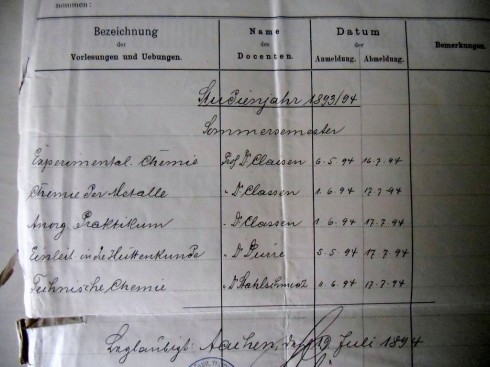 nommen:
Bezeichnung Name Datum
der des
Vorlesungen und Uebungen. Docenten. Anmeldung. Abmeldung. Bemerkungen.
Studienjahr 1893/94
Sommersemester
Experimental. Chemie Prof Dr Claisen 6.5.94 16.7.94
Chemie der Metalle " Dr Classen 1.6.94 17.7.94
Anorg. Praktikum " Dr Classen 1.6.94 17.7.94
Einleit in die Hüttenkunde " Dr Dürre 5.5.94 17.7.94
Technische Chemie " Dr Stahlschmidt 17.7.94
Beglaubigt: Aachen, den 19 Juli 1894